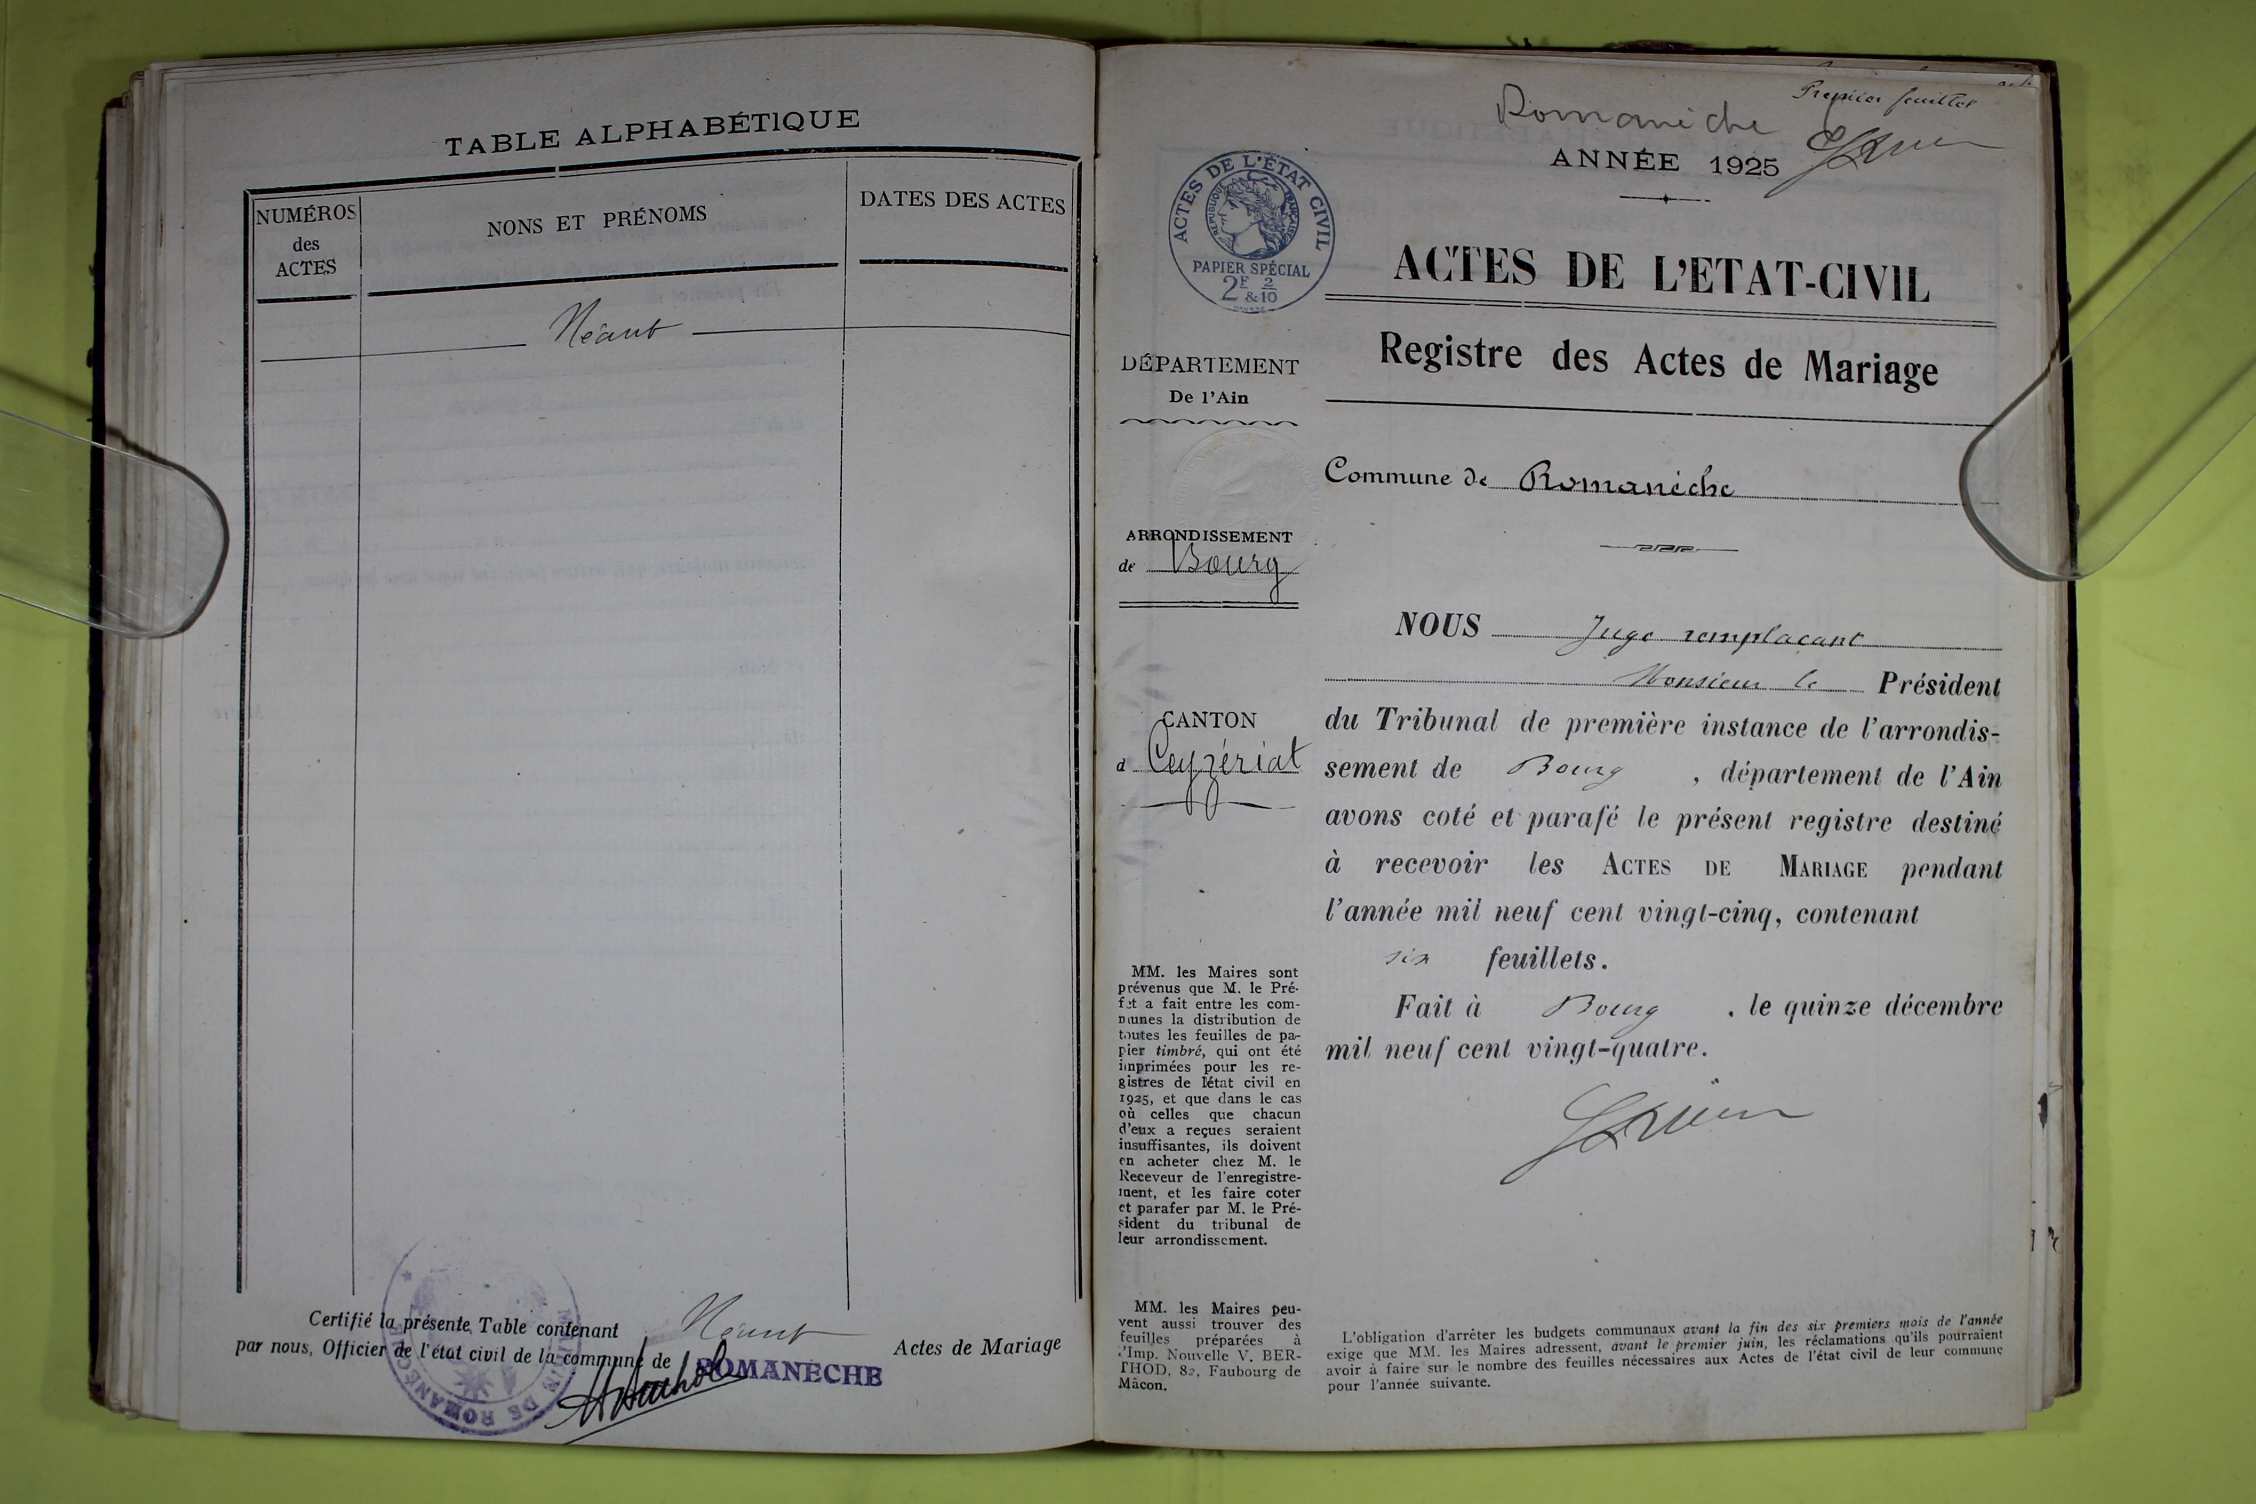 TABLE ALPHABÉTIQUE
NUMÉROS
des
ACTES
NONS ET PRÉNOMS
DATES DES ACTES
Néant
Certifié la présente Table contenant Néant Actes de Mariage
par nous, Officier de l'état civil de la commune de ROMANÈCHE
MAIRIE DE ROMANÈCHE
Premier feuillet
Romanèche
ANNÉE 1925
ACTES DE L'ÉTAT CIVIL
RÉPUBLIQUE FRANÇAISE
PAPIER SPÉCIAL
2F 2
& 10
ACTES DE L'ETAT-CIVIL
Registre des Actes de Mariage
DÉPARTEMENT
De l'Ain
Commune de Romanèche
ARRONDISSEMENT
de Bourg
CANTON
d Ceyzériat
NOUS Juge remplaçant
Monsieur le Président
du Tribunal de première instance de l'arrondis-
sement de Bourg , département de l'Ain
avons coté et parafé le présent registre destiné
à recevoir les ACTES DE MARIAGE pendant
l'année mil neuf cent vingt-cinq, contenant
six feuillets.
Fait à Bourg , le quinze décembre
mil neuf cent vingt-quatre.
MM. les Maires sont
prévenus que M. le Pré-
fet a fait entre les com-
munes la distribution de
toutes les feuilles de pa-
pier timbré, qui ont été
imprimées pour les re-
gistres de l'état civil en
1925, et que dans le cas
où celles que chacun
d'eux a reçues seraient
insuffisantes, ils doivent
en acheter chez M. le
Receveur de l'enregistre-
ment, et les faire coter
et parafer par M. le Pré-
sident du tribunal de
leur arrondissement.
MM. les Maires peu-
vent aussi trouver des
feuilles préparées à
l'Imp. Nouvelle V. BER-
THOD, 82, Faubourg de
Mâcon.
L'obligation d'arrêter les budgets communaux avant la fin des six premiers mois de l'année
exige que MM. les Maires adressent, avant le premier juin, les réclamations qu'ils pourraient
avoir à faire sur le nombre des feuilles nécessaires aux Actes de l'état civil de leur commune
pour l'année suivante.